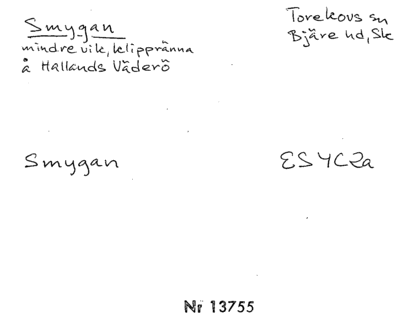 Smygan
mindre vik, klippränna
å Hallands Väderö
Torekovs sn
Bjäre hd, Sk
Smygan
ES4C2a
Nr 13755